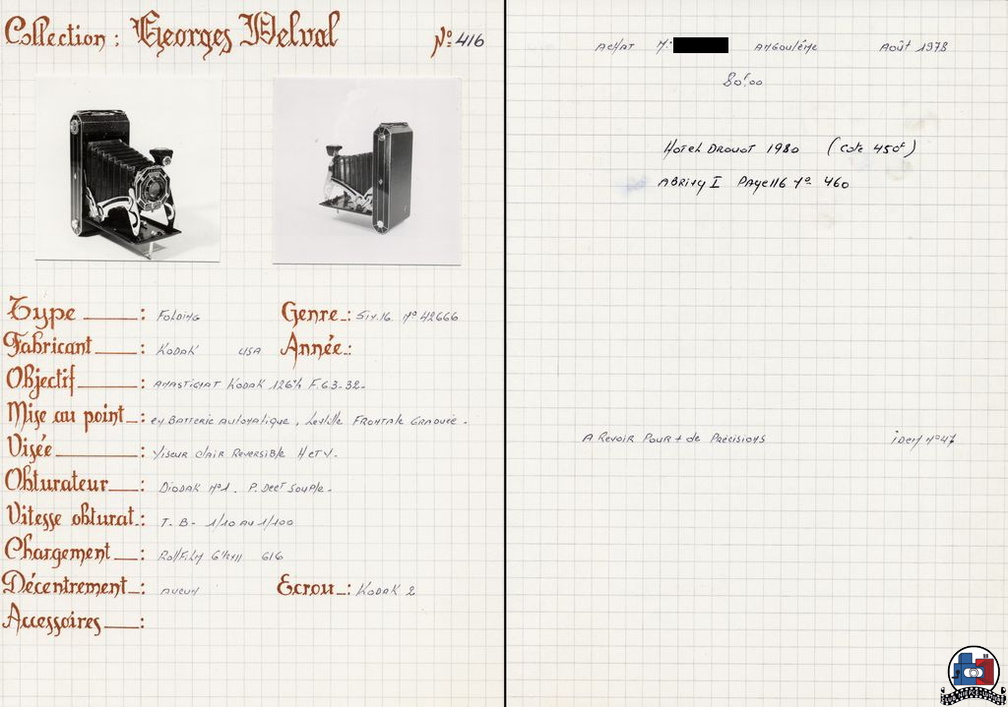 Collection : Georges Delval Nº 416
Type : Folding Genre : Six.16. nº 42666
Fabricant : Kodak USA Année :
Objectif : Anastigmat Kodak 126m/m F.6.3-32-
Mise au point : en Batterie Automatique, Lentille Frontale Graduée.
Visée : Viseur Clair Reversible H et V.
Obturateur : Diodak nº1. P. Dect Souple.
Vitesse obturat. : T. B- 1/10 Au 1/100
Chargement : RollFilm 616
Décentrement : Aucun Ecrou : Kodak 2
Accessoires :
Achat M. Angoulême Août 1978
80f,00
Hotel Drouot 1980 (Cote 450f)
Page 116 nº 460
A Revoir Pour + de Précisions idem nº47